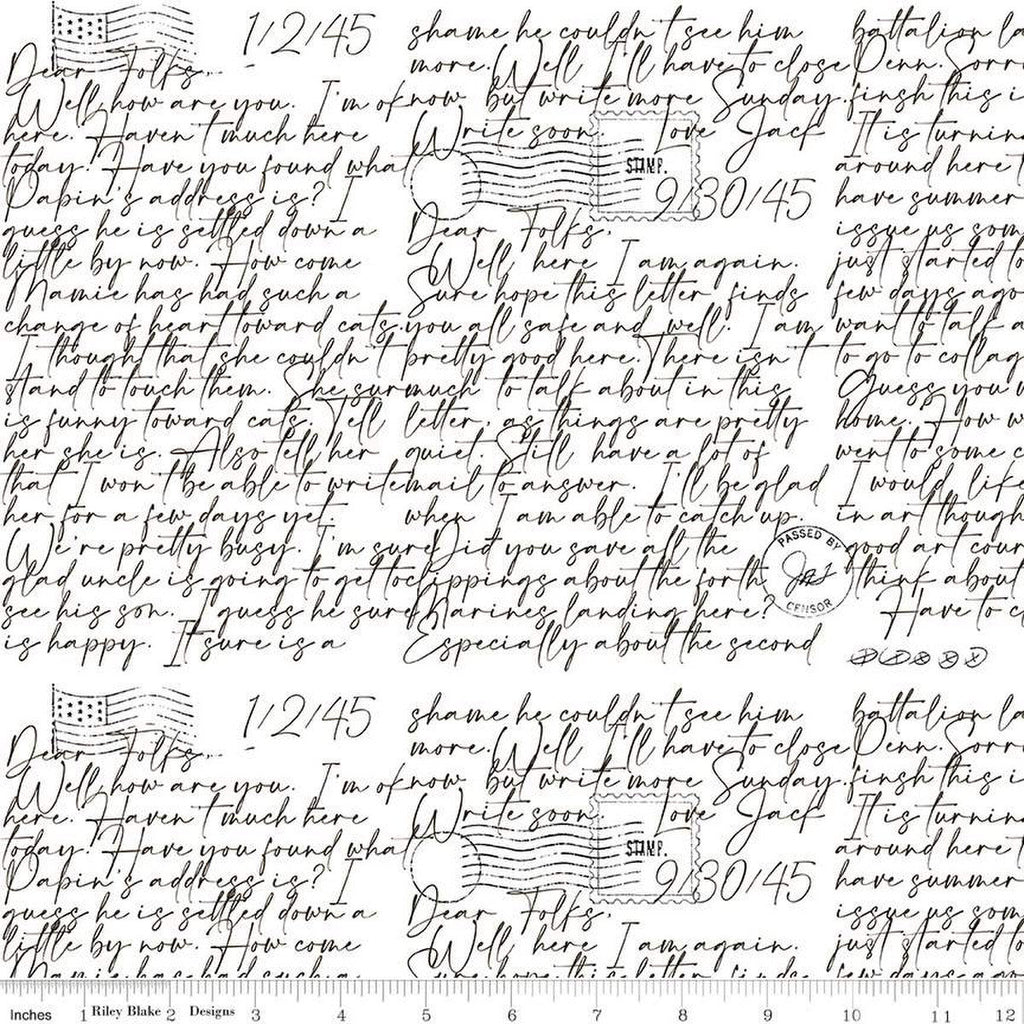 1/2/45
Dear Folks,
Well, how are you. I'm ok
here. Haven't much here
today. Have you found what
Papin's address is? I
guess he is settled down a
little by now. How come
Mamie has had such a
change of heart toward cats.
I thought that she couldn't
stand to touch them. She sur
is funny toward cats. Tell
her she is. Also tell her
that I won't be able to write
her for a few days yet.
We're pretty busy. I'm sure
glad uncle is going to get to
see his son. I guess he sure
is happy. It sure is a
shame he couldn't see him
more. Well I'll have to close
now, but write more Sunday.
Write soon. Love Jack
STAMP.
9/30/45
Dear Folks,
Well, here I am again.
Sure hope this letter finds
you all safe and well. I am
pretty good here. There isn't
much to talk about in this
letter, as things are pretty
quiet. Still have a lot of
mail to answer. I'll be glad
when I am able to catch up.
Did you save all the
clippings about the forth
Marines landing here?
Especially about the second
PASSED BY
CENSOR
battalion la
Penn. Sorr
finsh this i
It is turnin
around here t
have summer
issue us som
just started to
few days ago
want to talk a
to go to collag
Guess you w
home. How w
went to some c
I would like
in art though
good art cour
think about
Have to c
1/2/45
Dear Folks,
Well, how are you. I'm ok
here. Haven't much here
today. Have you found what
Papin's address is? I
guess he is settled down a
little by now. How come
Mamie has had such a
shame he couldn't see him
more. Well I'll have to close
now, but write more Sunday.
Write soon. Love Jack
STAMP.
9/30/45
Dear Folks,
Well, here I am again.
Sure hope this letter finds
battalion la
Penn. Sorr
finsh this i
It is turnin
around here t
have summer
issue us som
just started to
few days ago
Inches 1 Riley Blake 2 Designs 3 4 5 6 7 8 9 10 11 12